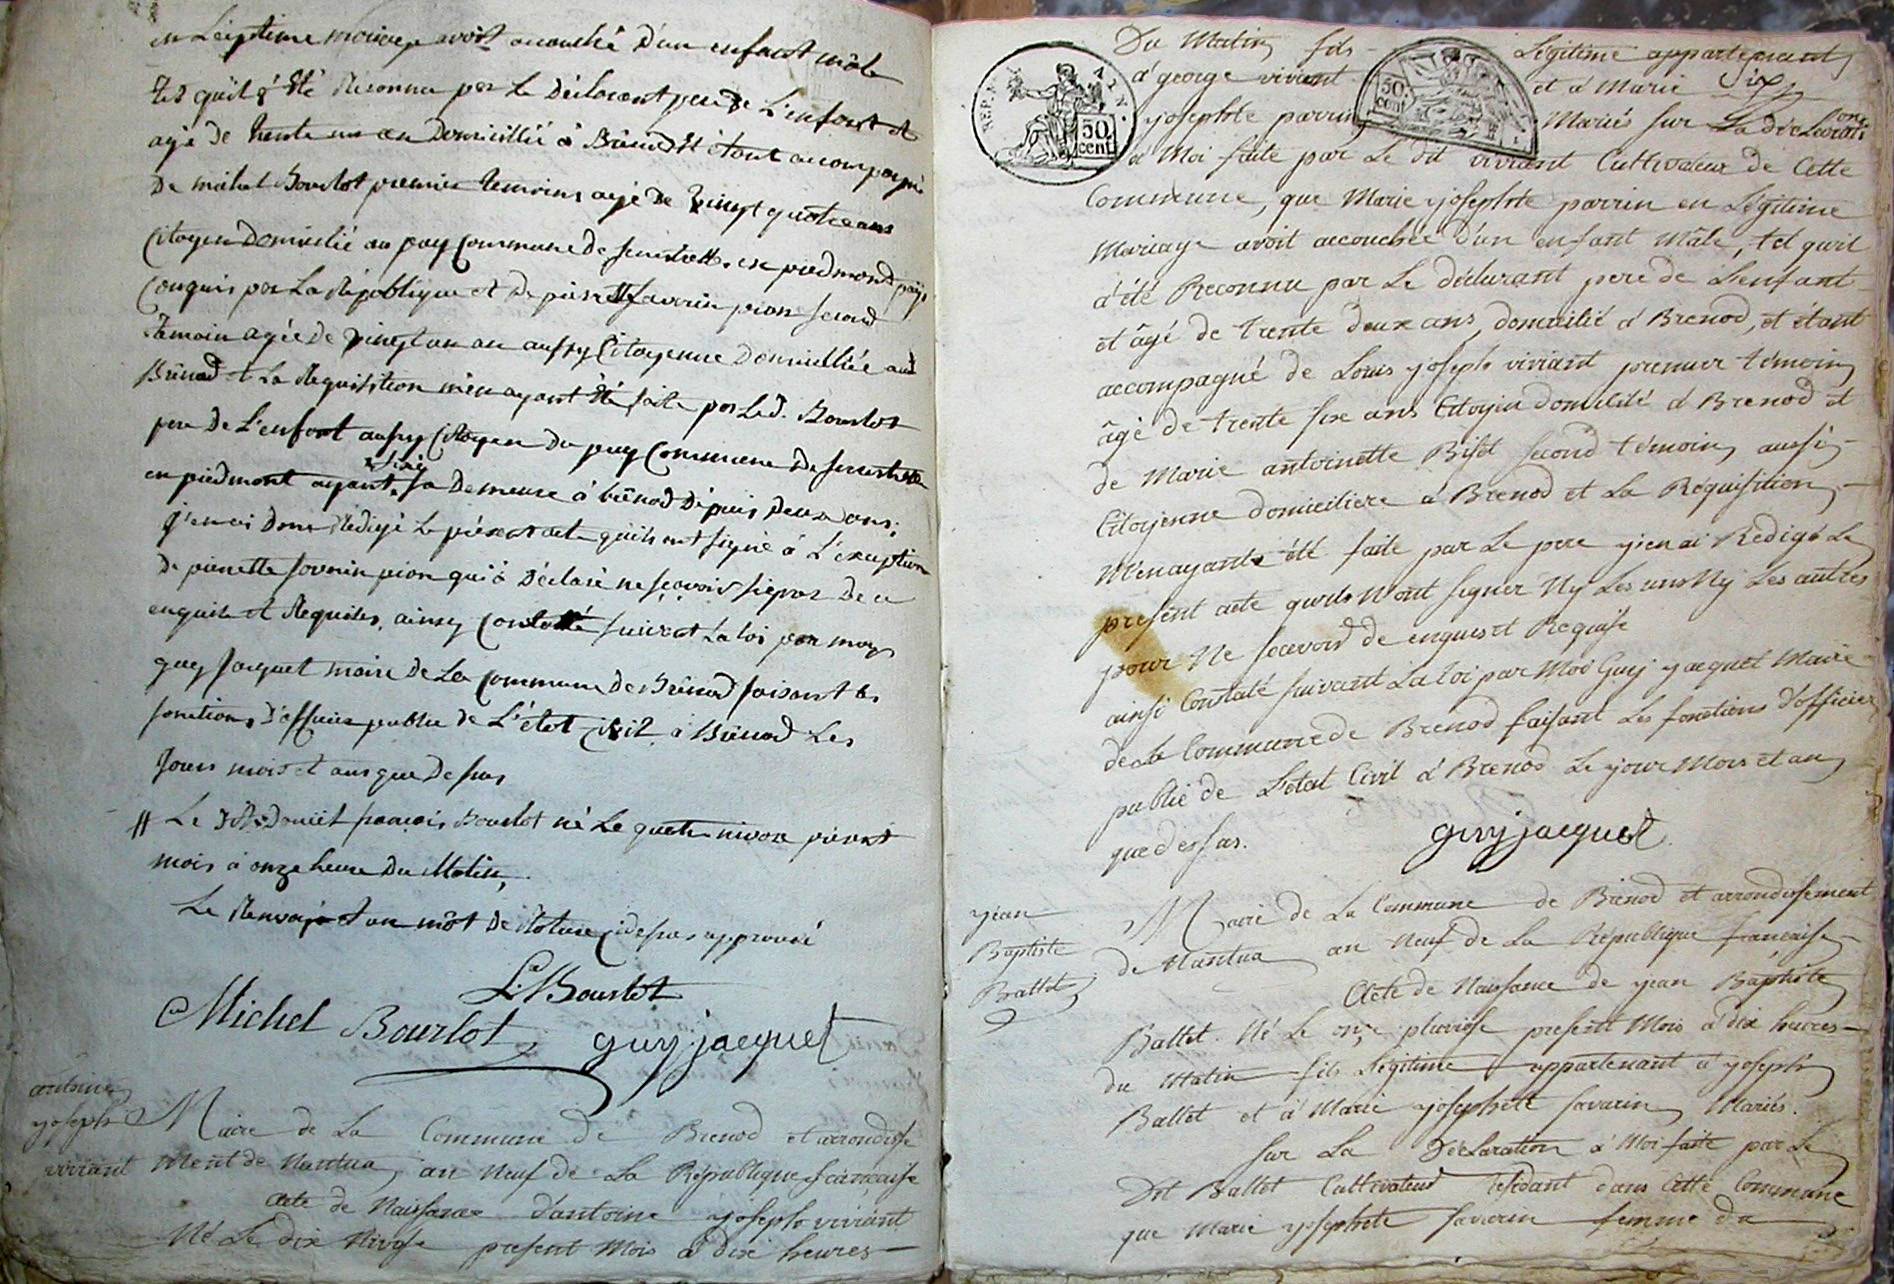 en Légitime mariage avoit accouché d'un enfant mâle
tel qu'il a été Reconnu par le déclarant pere de L'enfant et
agé de trente un an Domicillié à Brénod Et étant accompagné
De michel Bourlot premier temoins agé de vingt quatre ans
Citoyen Domicilié au pay Commune de fenestrelle en piedmond pays
Conquis par La République et De pierrette favorin pion second
temoin agée de vingt un an aussy Citoyenne Domicilliée aud
Brénod et La Requisition m'en ayant été faite par Led. Bourlot
pere De L'enfant aussy Citoyen du pay Commune de fenestrelle
en piedmont ayant fixé sa Demeure à brénod Depuis Deux ans;
j'en ai Donc Rédigé Le présent acte qu'ils ont signé à L'exception
De pierrette favorin pion qui à Déclaré ne sçavoir signer De ce
enquise et Requises, ainsy Constaté suivant La loi par moy
guy Jacquet maire de La Commune de Brénod faisant les
fonctions D'officier public de L'état Civil à Brénod Les
Jours mois et ans que Dessus
# Le françois Bourlot né Le quatre nivose présent
mois à onze heure Du Matin,
Le Renvoy et un mot De Roture cidessus approuvé
Bourlot
Michel Bourlot guy jacquet
antoine
yoseph
viviant
Maire de La Commune de Brenod et arrondisse
ment de Nantua, an Neuf de La République française
acte de Naissance d'antoine yoseph viviant
Né Le dix Nivose present Mois à dix heures
Du Matin fils Légitime appartenant
à george viviant et à Marie
yosephte parrin Mariés sur La déclaration
à Moi faite par Le dit viviant Cultivateur de Cette
Commune, que Marie yosephte parrin en Légitime
Mariage avoit accouchée d'un enfant Mâle, tel qu'il
a été Reconnu par Le déclarant pere de L'enfant
et âgé de trente deux ans, domicilié à Brenod, et étant
accompagné de Louis yoseph viviant premier témoin
âgé de trente six ans Citoyen domicilié à Brenod et
de Marie antoinette Biset second témoin aussi
Citoyenne domiciliere à Brenod et La Requisition
M'en ayant été faite par Le pere y'en ai Redigé Le
present acte qu'ils N'ont signer Ny Les uns Ny Les autres
pour Ne scavoir de enquis et Requise
ainsi Contaté suivant La loi par Moi Guy yacquet Maire
de la Commune de Brenod faisant Les fonctions d'officier
public de L'etat Civil à Brenod Le jour Mois et an
que dessus.
guy jacquet
REP. 50 cent.
50 cent
yean
Baptiste
Ballet
Maire de La Commune de Brénod et arrondissement
de Nantua an Neuf de La République francaise
Acte de Naissance de yean Baptiste
Ballet. Né Le onze pluviose present Mois à dix heures
du Matin fils Légitime appartenant à yoseph
Ballet et à Marie yosephete favarin Mariés.
sur La Déclaration à Moi faite par Le
Dit Ballet Cultivateur residant dans Cette Commune
que Marie yosephete favarin femme du